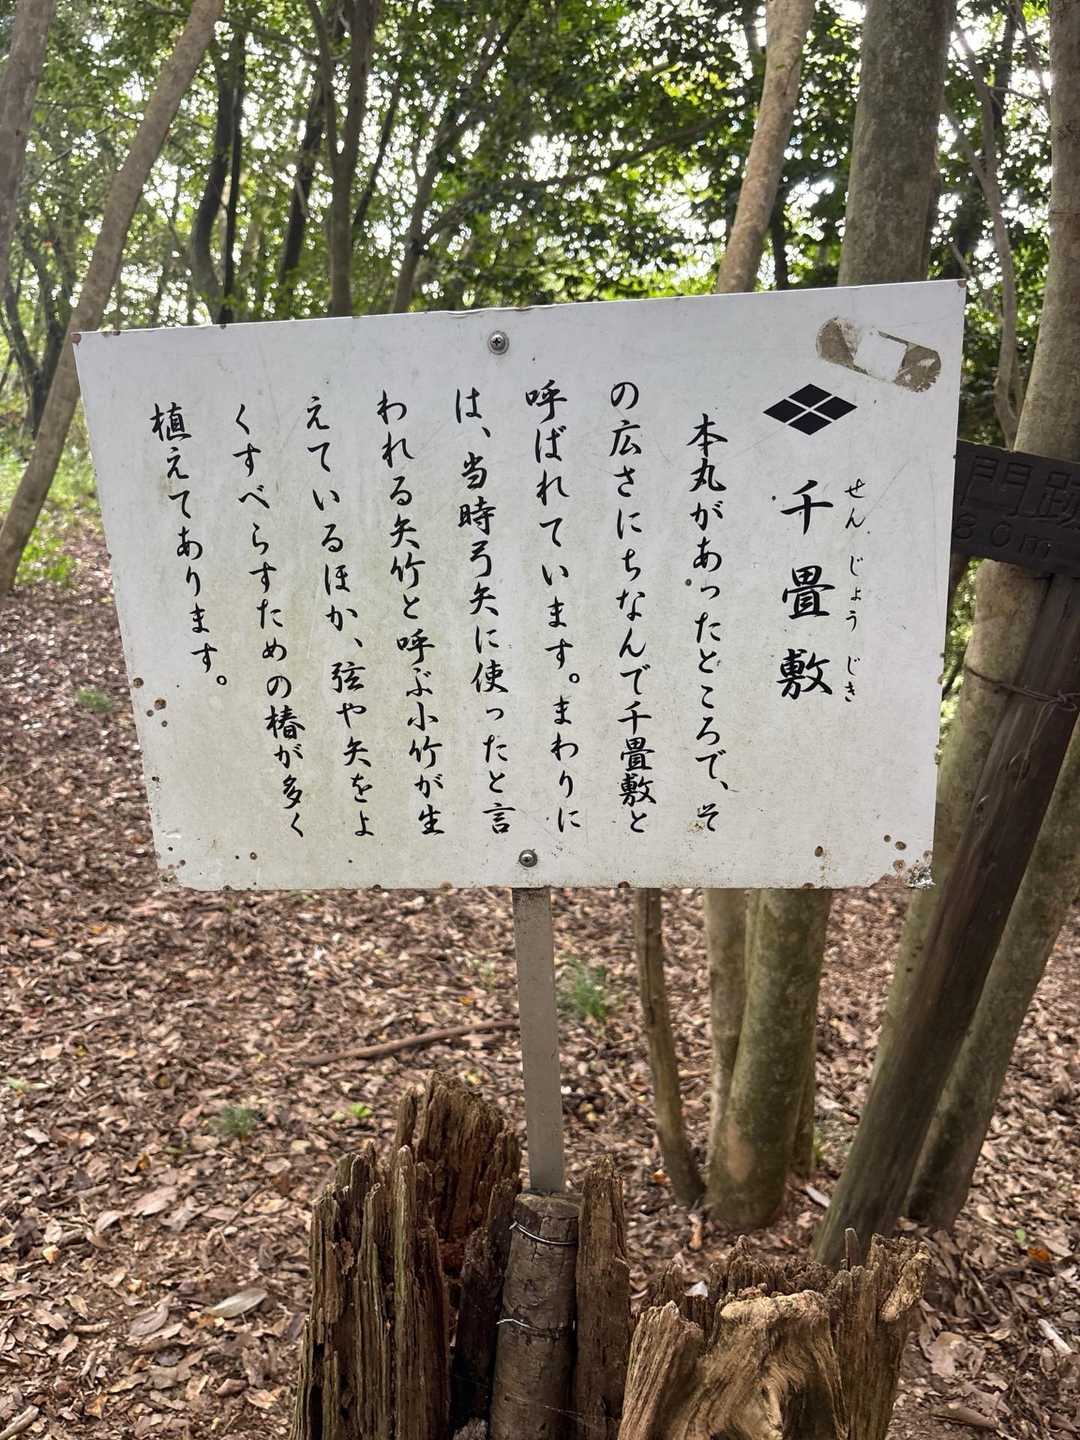 千畳敷
せんじょうじき
本丸があったところで、そ
の広さにちなんで千畳敷と
呼ばれています。まわりに
は、当時弓矢に使ったと言
われる矢竹と呼ぶ小竹が生
えているほか、弦や矢をよ
くすべらすための椿が多く
植えてあります。
門跡
80m